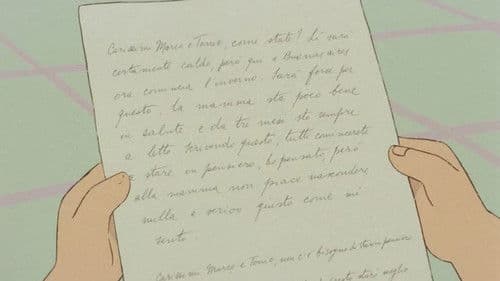 Carissimi Marco e Tonio, come state? Lì sarà
certamente caldo, però qui a Buenos Aires
ora comincia l'inverno. Sarà forse per
questo. la mamma sta poco bene
in salute e da tre mesi sto sempre
a letto scrivendo questo, tutti comincerete
a stare in pensiero, ho pensato, però
alla mamma non piace nascondere
nulla e scrivo questo come mi
sento.
Carissimi Marco e Tonio, non c'è bisogno di stare in pensiero
questo star meglio